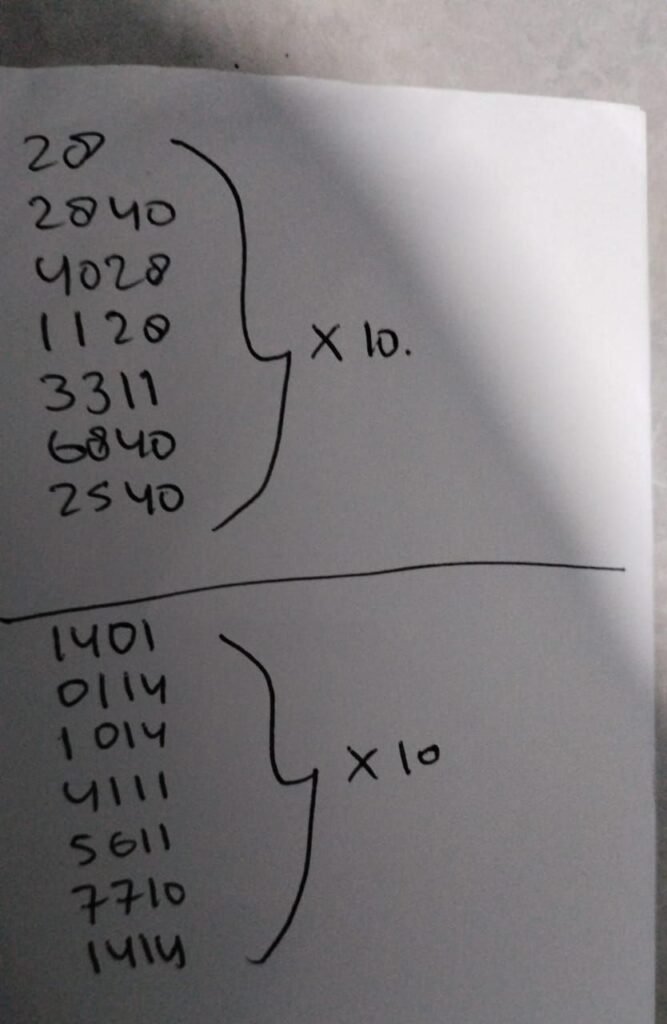 28
2840
4028
1128
3311
6840
2540
x 10.
1401
0114
1014
4111
5611
7710
1414
x 10